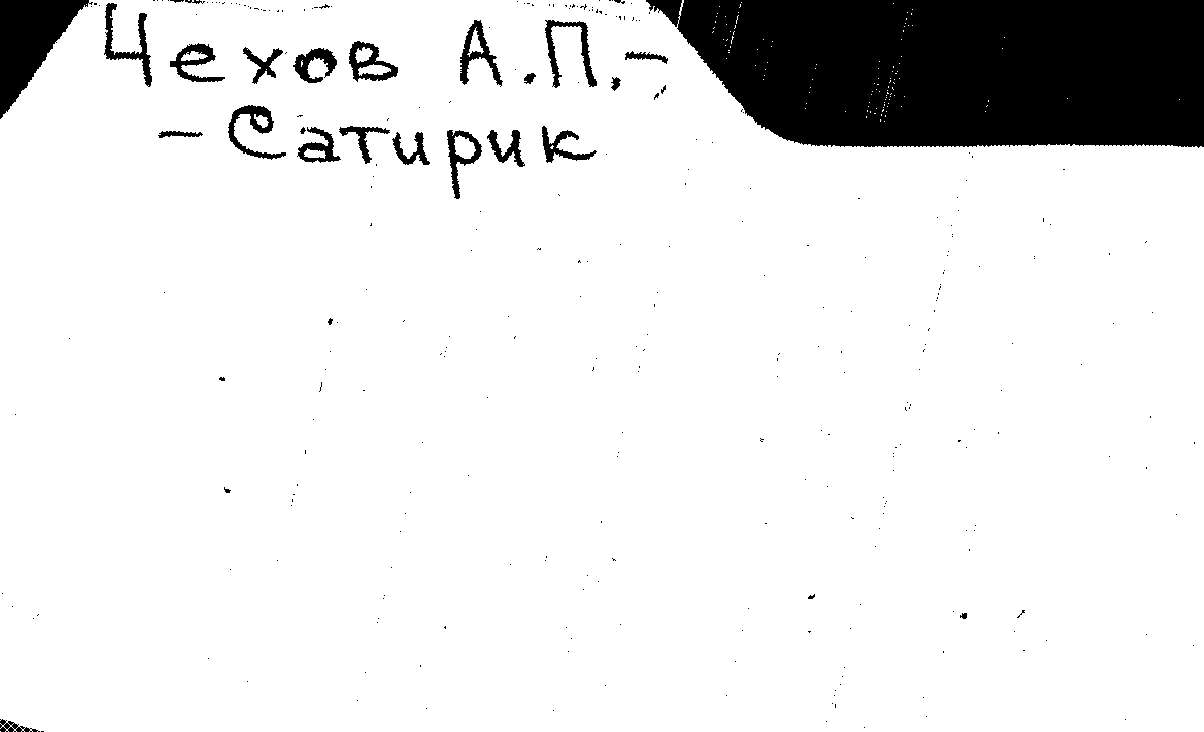 Чехов А.П.-
- Сатирик